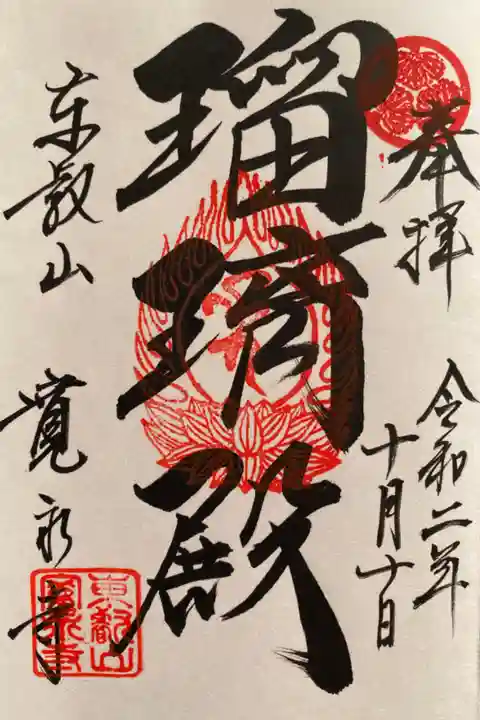 奉拝 令和二年
十月十日
瑠璃殿
東叡山 寛永寺
東叡山
寛永寺